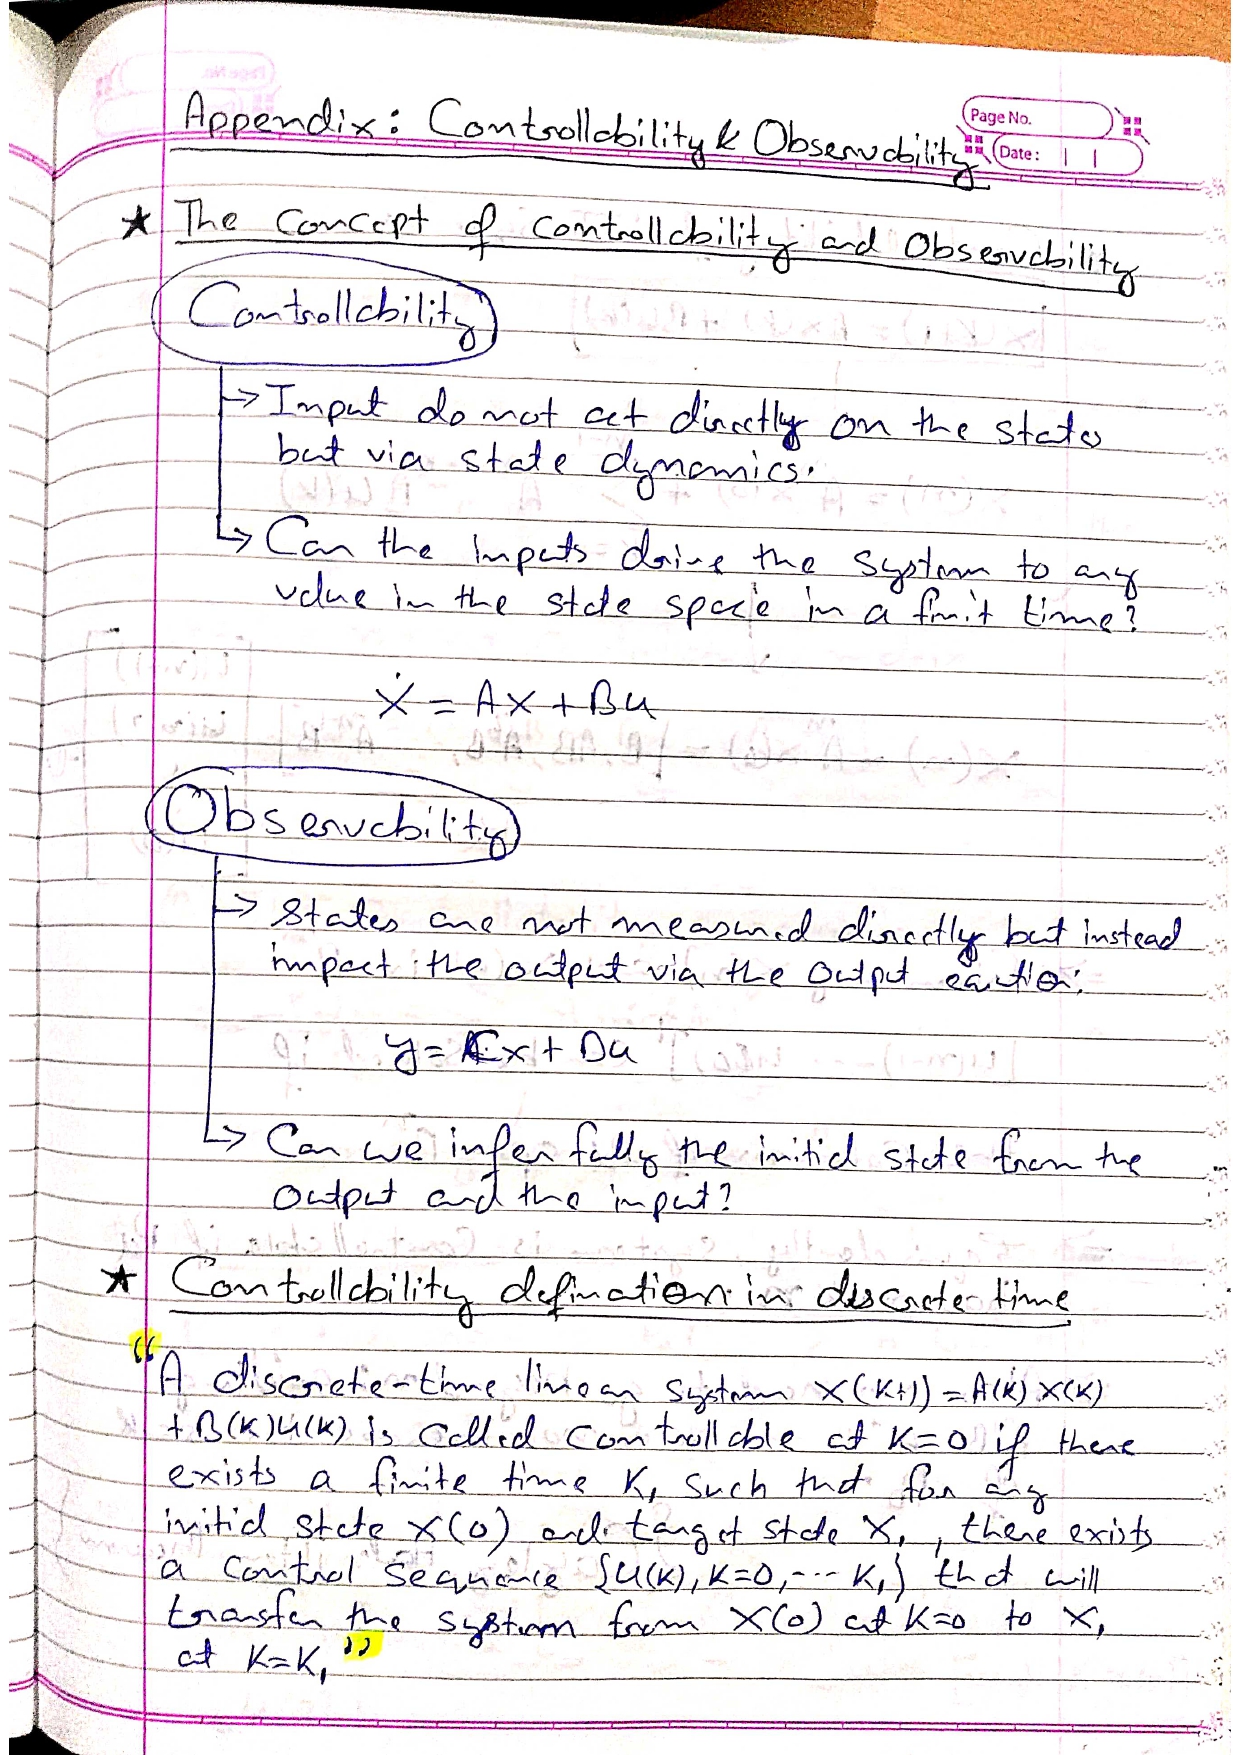 Page No.
Date:
Appendix: Controllability & Observability
★ The Concept of Controllability and Observability
Controllability
→ Input do not act directly on the states
but via state dynamics.
↳ Can the inputs drive the system to any
value in the state space in a finit time?
Ẋ = AX + Bu
Observability
→ States are not measured directly but instead
impact the output via the output eqution:
y = Cx + Du
↳ Can we infer fully the initial state from the
output and the input?
★ Controllability defination in discrete time
“A discrete-time linear system X(K+1) = A(K) X(K)
+ B(K)U(K) is called controllable at K=0 if there
exists a finite time K₁ such that for any
initial state X(0) and target state X₁, there exists
a control sequence {U(K), K=0,--- K₁} that will
transfer the system from X(0) at K=0 to X₁
at K=K₁”